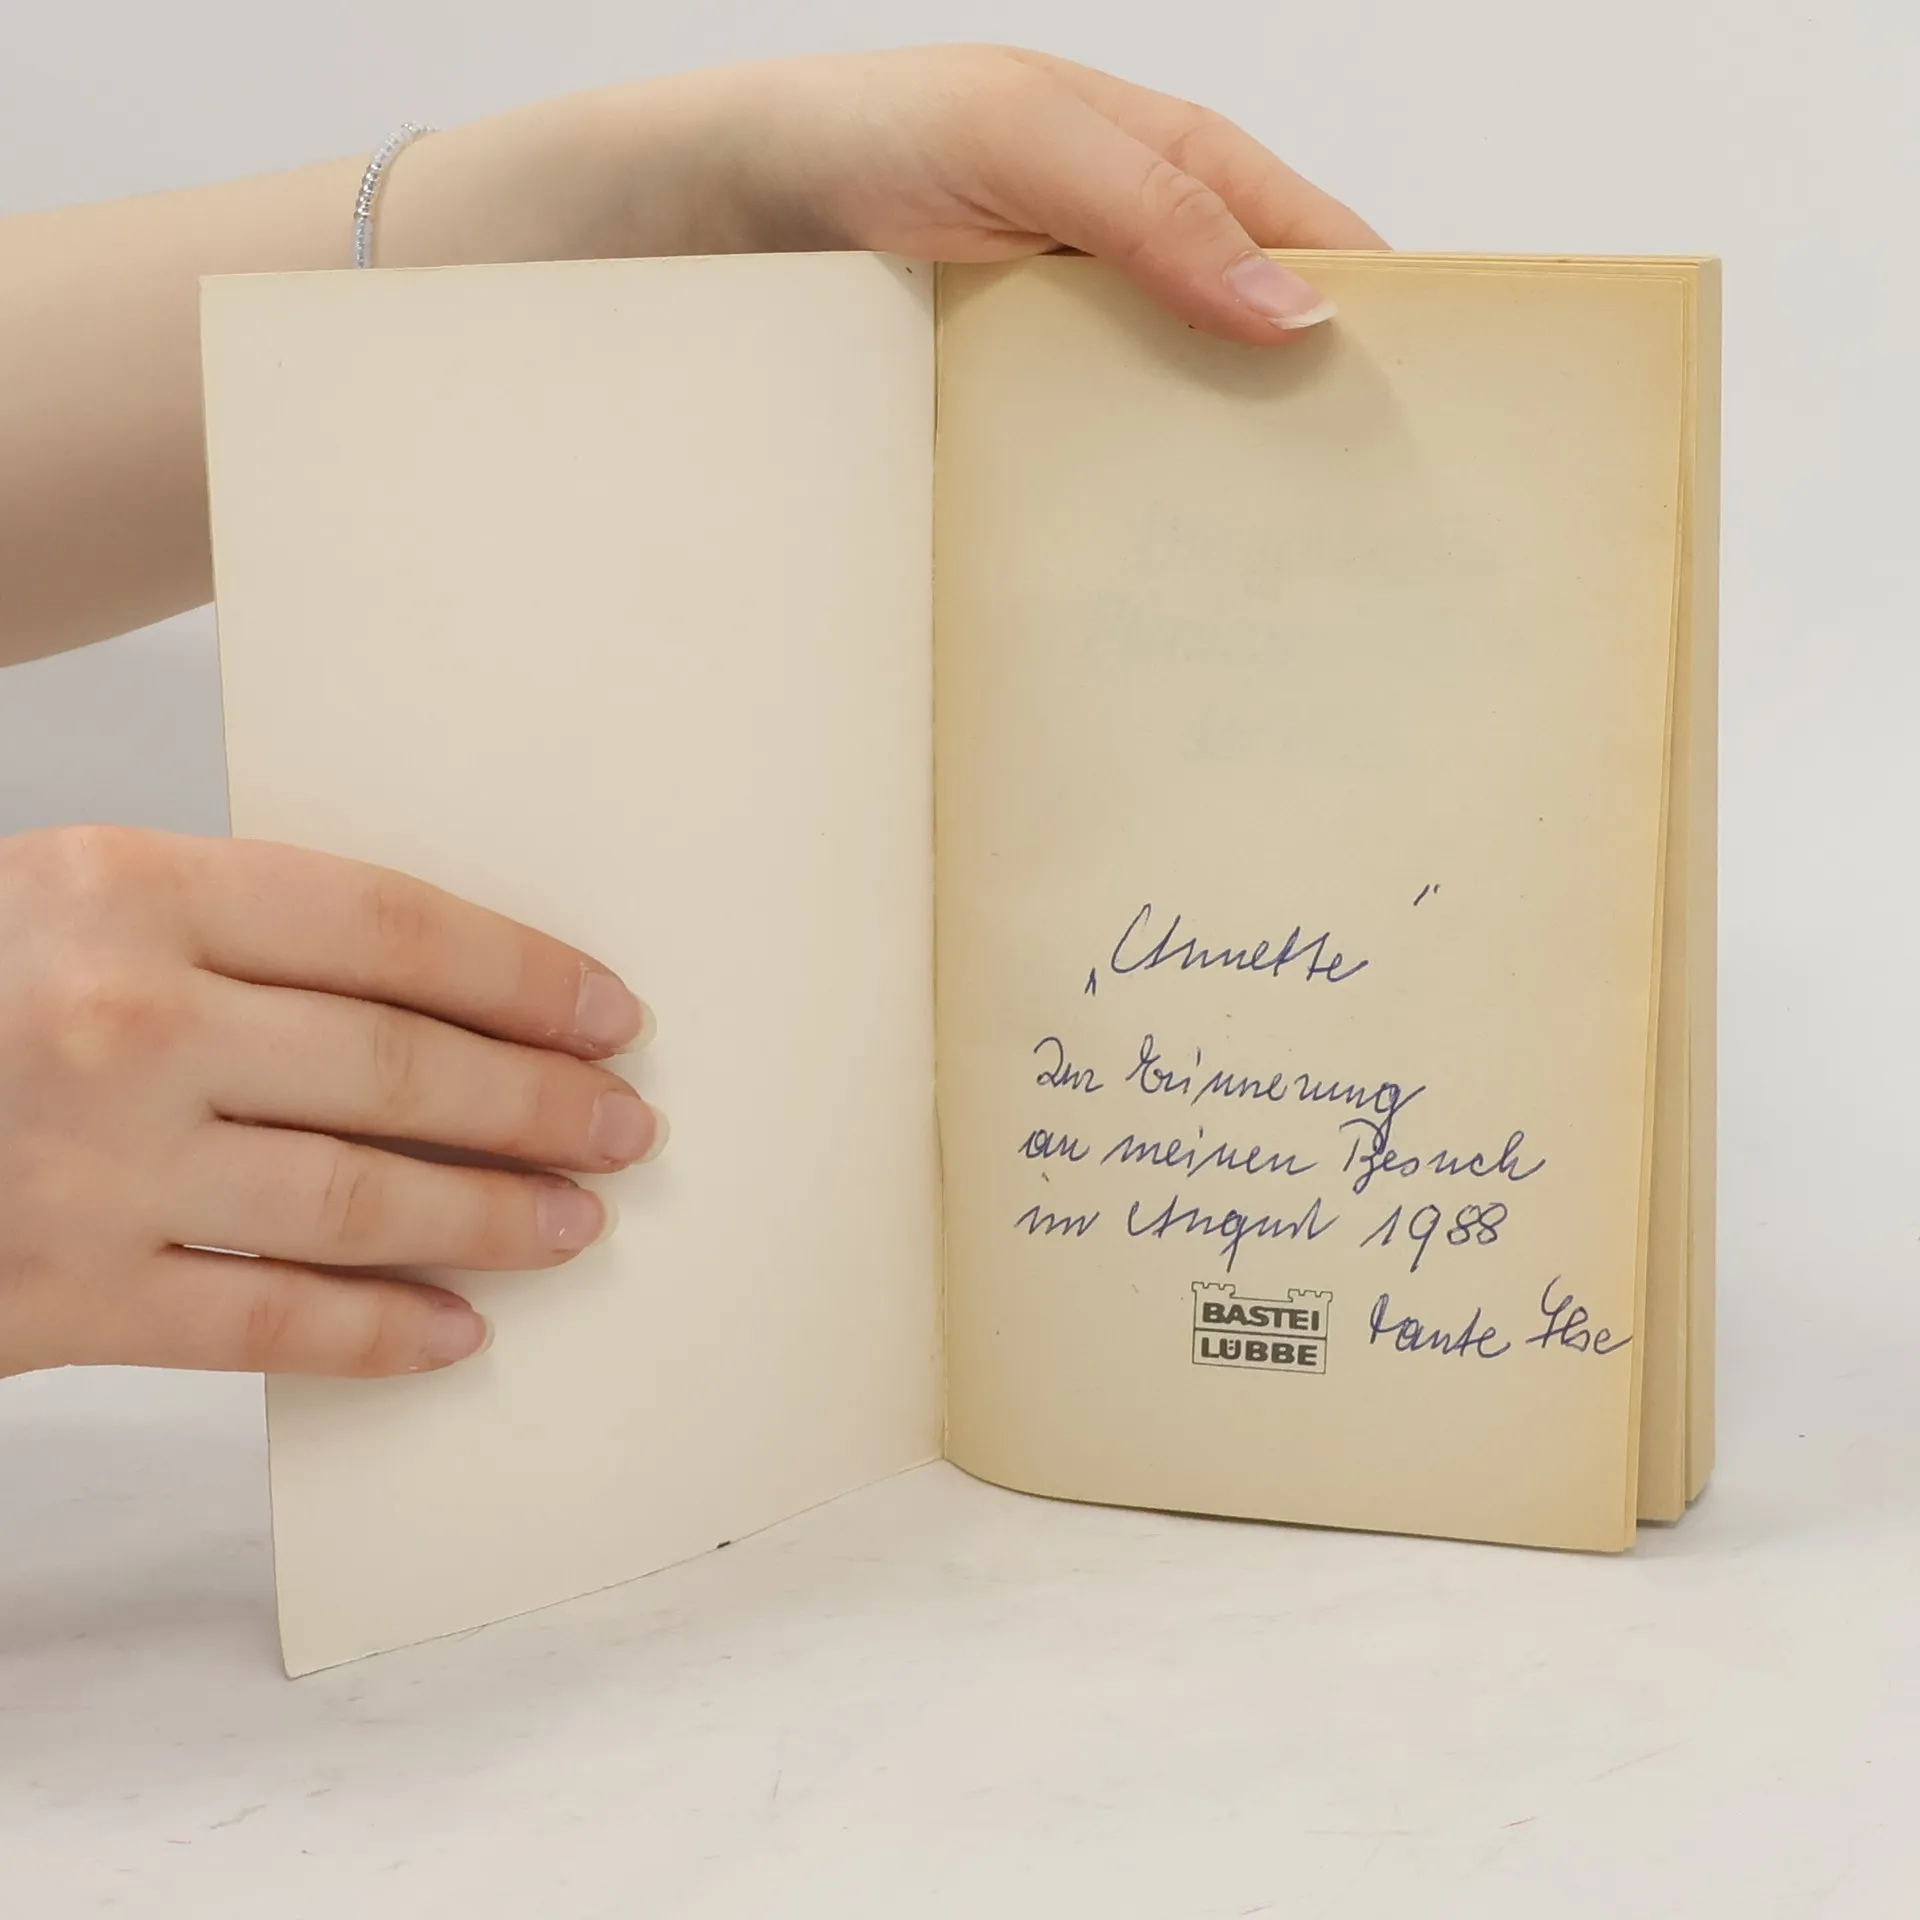 „Annette"
Zur Erinnerung
an meinen Besuch
im August 1988
BASTEI
LÜBBE
Tante Ilse